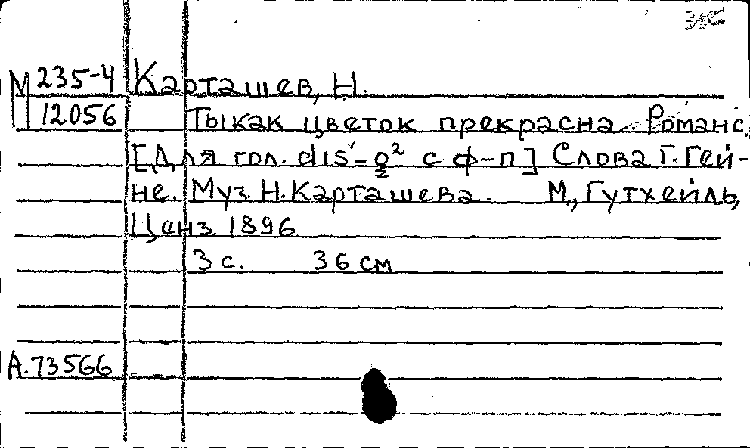 М 235-4 Карташев, Н.
12056 Ты как цветок прекрасна. Романс.
[Для гол. dis'-g² с ф-п] Слова Г. Гей-
не. Муз. Н. Карташева. М., Гутхейль,
Ценз 1896
3 с. 36 см
А.73566